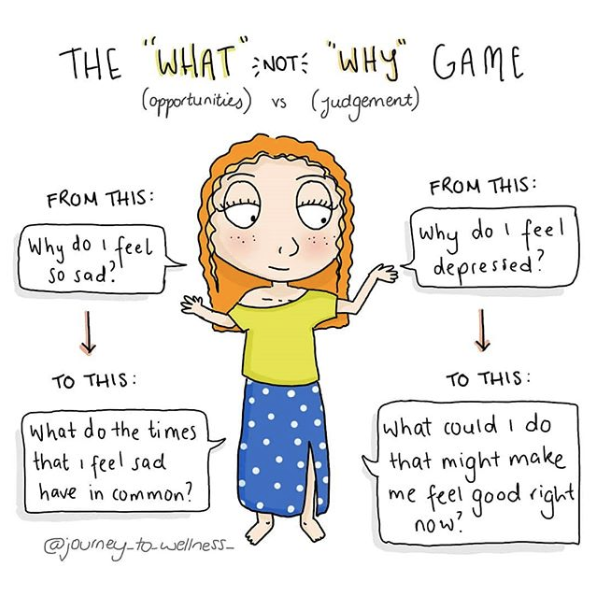 THE "WHAT" NOT "WHY" GAME
(opportunities) vs (judgement)
FROM THIS:
Why do I feel
so sad?
TO THIS:
What do the times
that i feel sad
have in common?
FROM THIS:
Why do I feel
depressed?
TO THIS:
What could I do
that might make
me feel good right
now?
@journey_to_wellness_